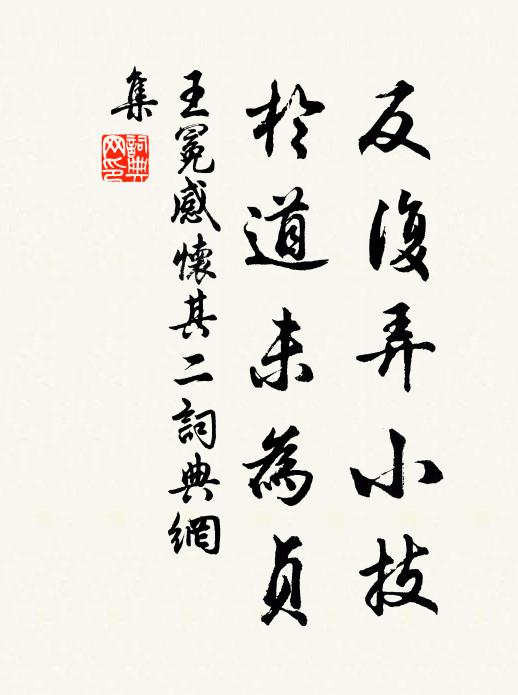 反復弄小技
於道未為貞
王冕感懷其二詞典網
集
詞典网印